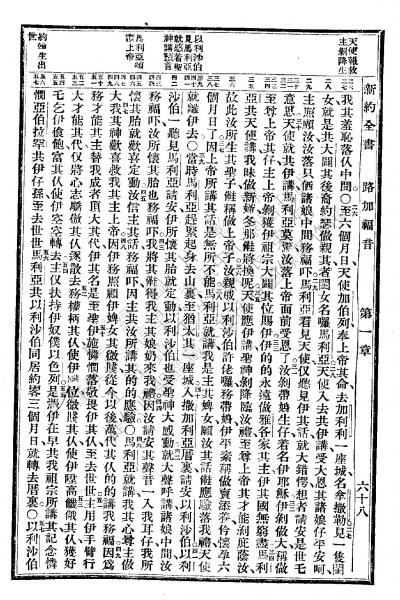 新約全書 路加福音 第一章 六十八
天使報救主剩降生
以利沙伯見馬利亞就感着聖神講預言
馬利亞頌上帝
約翰生出世
我其羞恥落仫中間○至六個月日天使加伯列奉上帝其命去加利利一座城名拿撒勒見一隻閨
女就是共大闢其後裔約瑟傲親其者閨女名囉馬利亞天使入去共伊講受大恩其諸娘仔平安呵
主照顧汝汝落只諸娘中間務福馬利亞看見天使聽見伊其話就大錯愕想者請安是世乇
意思天使就共伊講馬利亞莫驚汝落上帝面前受恩了汝剩帶身生仔若名伊耶穌伊剩做大稱做
至尊上帝其仔主上帝剩獲伊祖宗大闢其位賜伊伊的永遠做雅各家其主伊其國無窮盡馬利
亞共天使講我昧做新婦怎能將換呢天使應伊講聖神剩降臨汝至尊上帝其才能剩庇蔭汝
故此汝所生其聖子稱做上帝子汝親戚以利沙伯許佬囉務帶身伊平素稱做賣添養伶懷孕六
個月日了因上帝所講其話是無所不能馬利亞就講我是主其婢女願汝其話應驗落我天使
就離伊去○當時馬利亞趕緊起身去山裏至猶太其一座城入撒加利亞厝裏請安以利沙伯以利
沙伯一聽見馬利亞請安伊所懷其胎就定動以利沙伯也受聖神感動就大聲呼講諸娘中間汝
務福汝所懷其胎也務福我將其難得我主其娘奶來我因汝請安其聲音一入我耳仔我所
懷其胎就歡喜定動汝信主其話務福因主共汝所講其的應驗○馬利亞就講我其心尊主做
大我其神歡喜救我其上帝因伊務照顧伊婢女其微賤從今以後萬代其人的講我務福因為
務才能其主替我成者頂大其代伊其名是至聖伊施憐憫落敬畏伊其人至去世世主用伊手臂行
大才能其代仅將心志驕傲其人使伊逐散去務權柄其人使伊位微賤其人使伊陞高餓其人獲好
乇乞伊飽富其人使伊空空轉去主扶持伊奴僕以色列是為伊在早共我祖宗所講其記念憐
憫亞伯拉罕共伊仔孫至去世世馬利亞共以利沙伯同居約略三個月日就轉去厝裏○以利沙伯